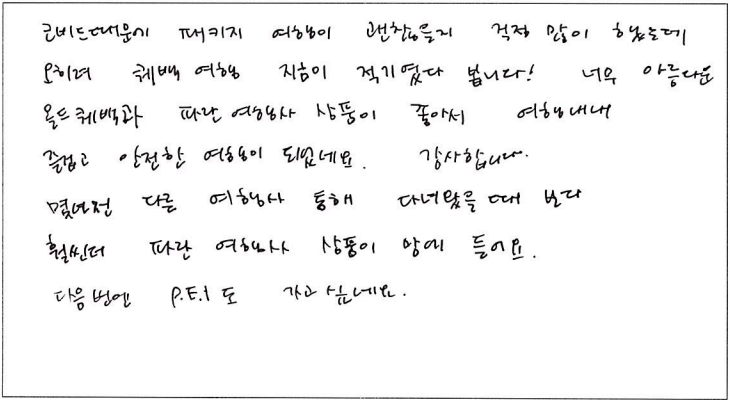 코비드때문에 패키지 여행이 괜찮을지 걱정 많이 했는데
오히려 퀘백 여행 지금이 적기였다 봅니다! 너무 아름다운
올드퀘백과 파란여행사 상품이 좋아서 여행내내
즐겁고 안전한 여행이 되었네요. 감사합니다.
몇년전 다른 여행사 통해 다녀왔을때 보다
훨씬더 파란 여행사 상품이 맘에 들어요.
다음번엔 P.E.I도 가고 싶네요.